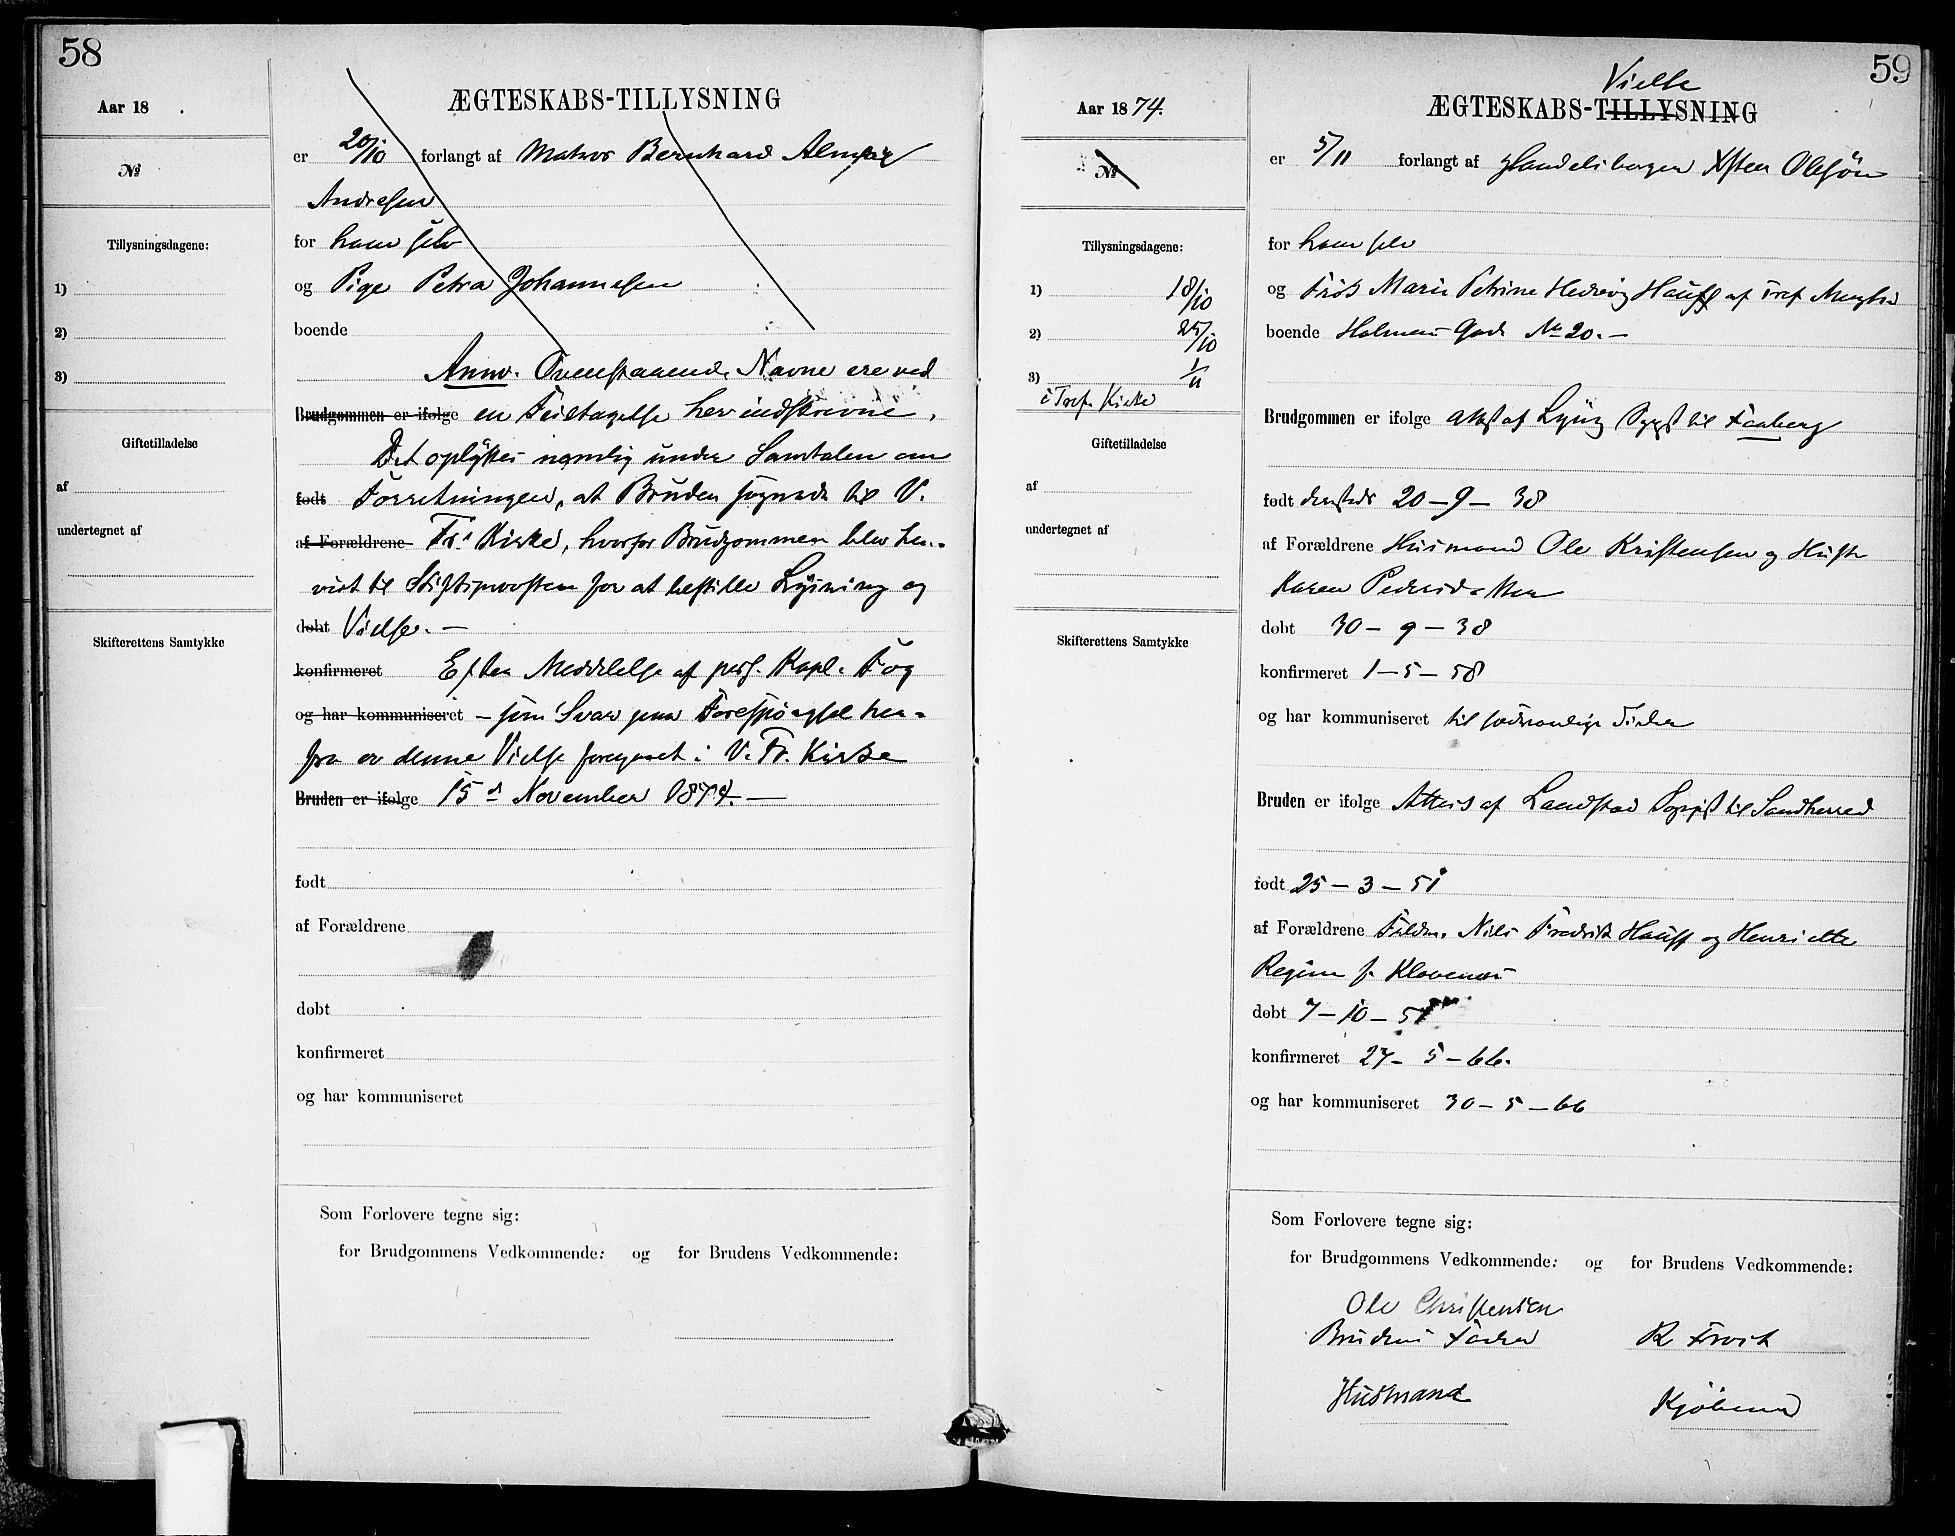 58
Aar 18 .
№
Tillysningsdagene:
1)
2)
3)
Giftetilladelse
af
undertegnet af
Skifterettens Samtykke
ÆGTESKABS-TILLYSNING
er 20/10 forlangt af Matros Bernhard
Andresen
for ham selv
og Pige Petra Johannesen
boende
Anm. Ovenstaaende Navne ere ved
Brudgommen er ifølge en Feiltagelse her indskrevne.
Det oplystes nemlig under Samtalen om
født Forretningen, at Bruden sognede til V.
af Forældrene Frs Kirke, hvorfor Brudgommen blev hen-
vist til Stiftsprovsten for at bestille Lysning og
døbt Vielse. —
konfirmeret Efter Meddelelse af pers. Kapl. Fog
og har kommuniseret – som Svar paa Forespørgsel her-
fra er denne Vielse foregaaet i V. Fr. Kirke
Bruden er ifølge 15de November 1874. —
født
af Forældrene
døbt
konfirmeret
og har kommuniseret
Som Forlovere tegne sig:
for Brudgommens Vedkommende: og for Brudens Vedkommende:
59
Aar 1874.
№
Tillysningsdagene:
1) 18/10
2) 25/10
3) 1/11
i Tref. Kirke
Giftetilladelse
af
undertegnet af
Skifterettens Samtykke
Vielse
ÆGTESKABS-TILLYSNING
er 5/11 forlangt af Handelsborger Olesøn
for ham selv
og Frøk Marie Petrine Hedevig Hauff af Tref. Menghd
boende Holmens Gade No 20. —
Brudgommen er ifølge Attest af Sgpst til Faaberg
født dersteds 20 – 9 – 38
af Forældrene Husmand Ole Kristensen og Hustr
Karen Pedersdatter
døbt 30 – 9 – 38
konfirmeret 1 – 5 – 58
og har kommuniseret til sædvanlige Tider
Bruden er ifølge Attest af Landstad Sognpst til Sandherred
født 25 – 3 – 51
af Forældrene Nils Fredrik Hauff og Henriette
Regine f. Klavenæs
døbt 7 – 10 – 51
konfirmeret 27 – 5 – 66.
og har kommuniseret 30 – 5 – 66
Som Forlovere tegne sig:
for Brudgommens Vedkommende: og for Brudens Vedkommende:
Ole Christensen
Brudens Fader R Frost
Husmand Kjøbmand